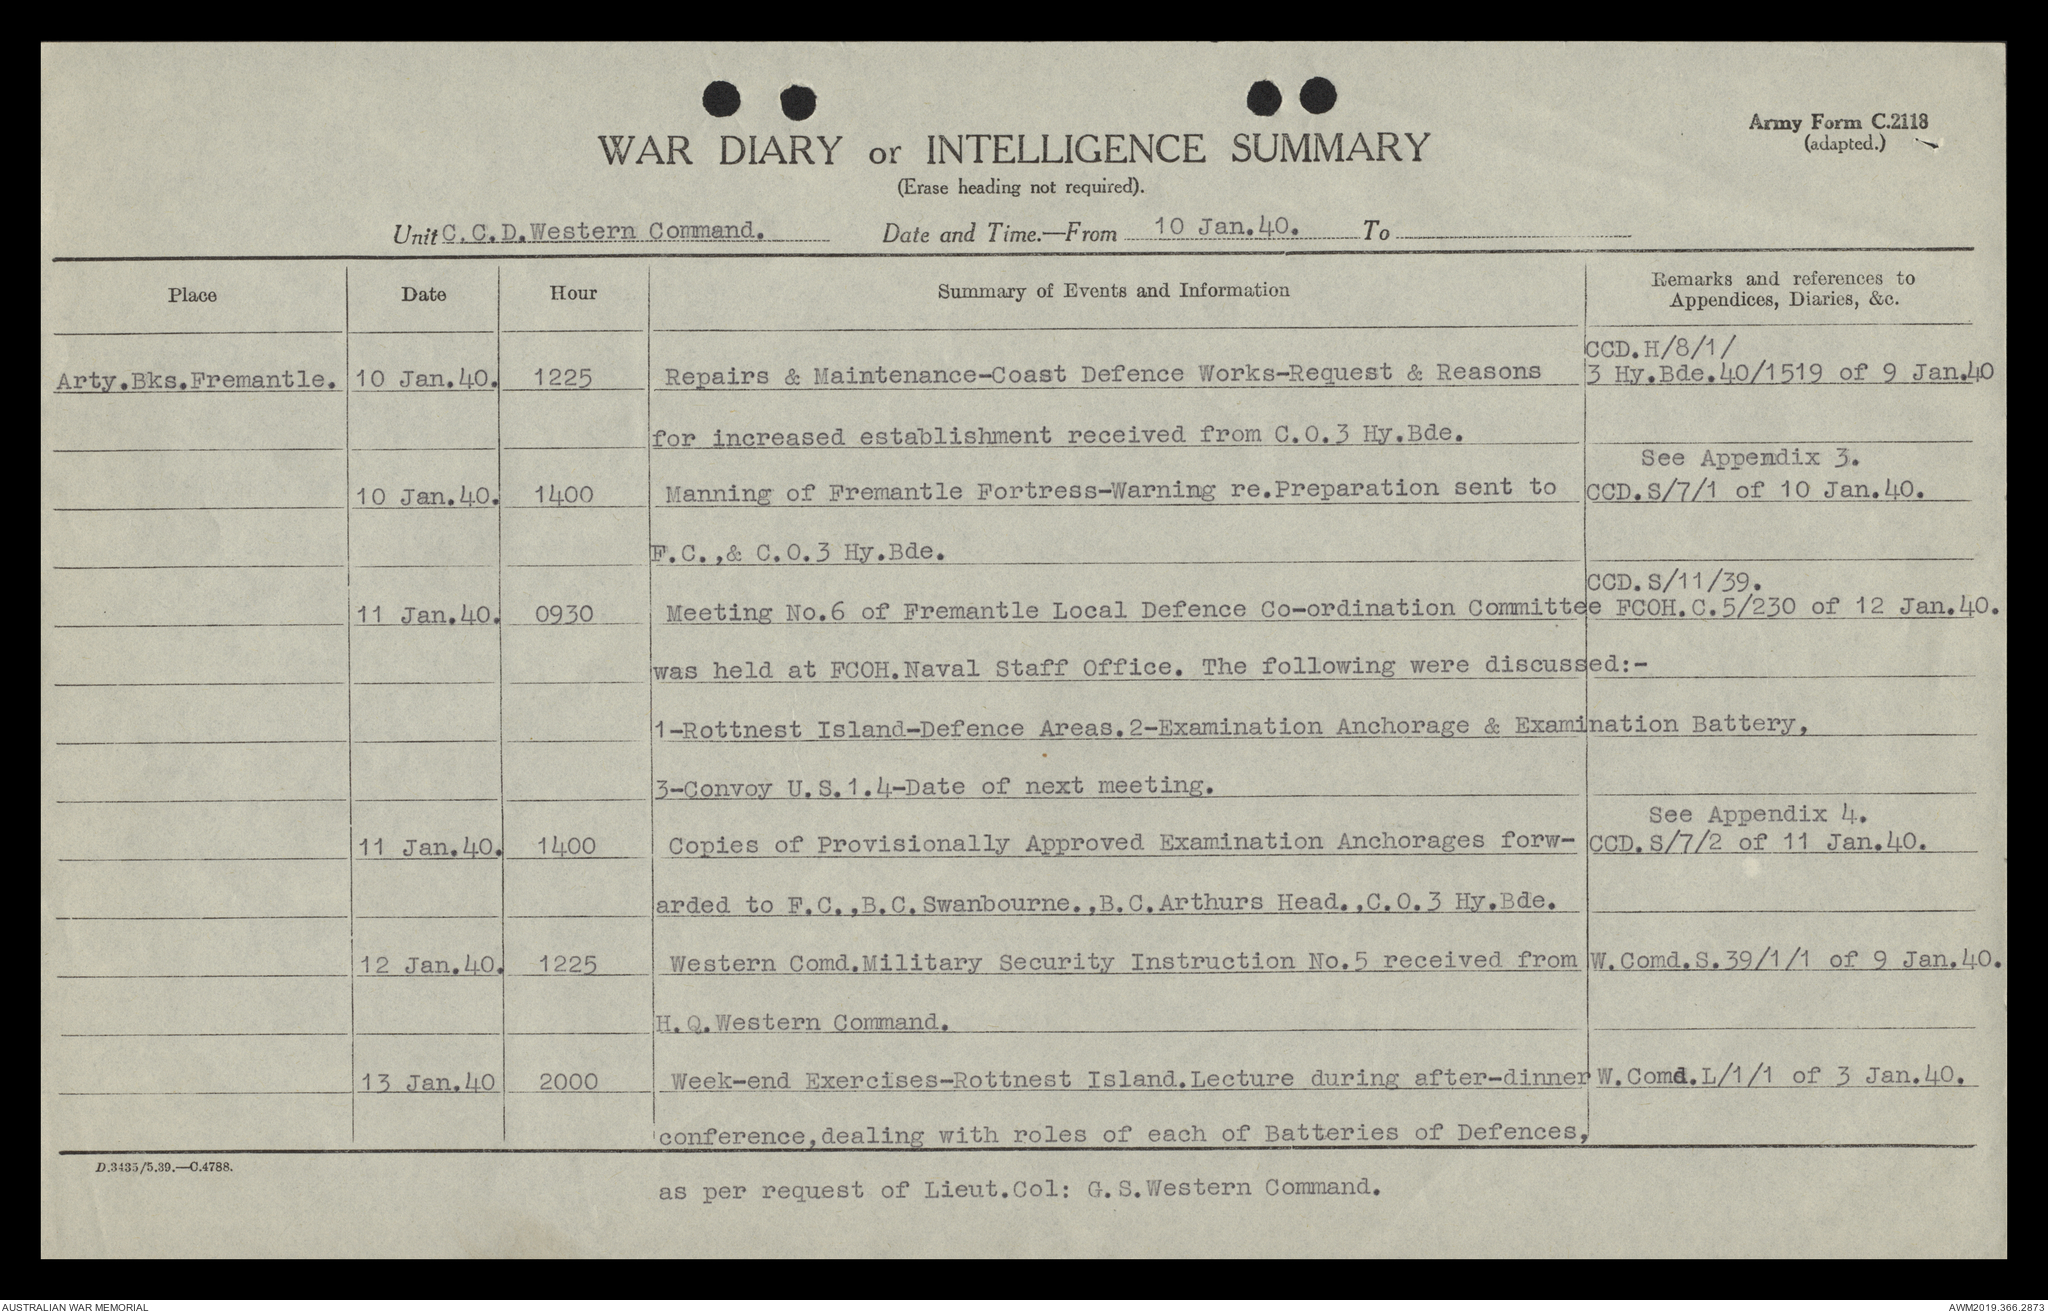 Army Form C.2118
(adapted.)
WAR DIARY or INTELLIGENCE SUMMARY
(Erase heading not required).
Unit C.C.D.Western Command. Date and Time.—From 10 Jan.40. To
Place Date Hour Summary of Events and Information Remarks and references to Appendices, Diaries, &c.
CCD.H/8/1/
Arty.Bks.Fremantle. 10 Jan.40. 1225 Repairs & Maintenance-Coast Defence Works-Request & Reasons 3 Hy.Bde.40/1519 of 9 Jan.40
for increased establishment received from C.O.3 Hy.Bde.
See Appendix 3.
10 Jan.40. 1400 Manning of Fremantle Fortress-Warning re.Preparation sent to CCD.S/7/1 of 10 Jan.40.
F.C.,& C.O.3 Hy.Bde.
CCD.S/11/39.
11 Jan.40. 0930 Meeting No.6 of Fremantle Local Defence Co-ordination Committee FCOH.C.5/230 of 12 Jan.40.
was held at FCOH.Naval Staff Office. The following were discussed:-
1-Rottnest Island-Defence Areas.2-Examination Anchorage & Examination Battery,
3-Convoy U.S.1.4-Date of next meeting.
See Appendix 4.
11 Jan.40. 1400 Copies of Provisionally Approved Examination Anchorages forw- CCD.S/7/2 of 11 Jan.40.
arded to F.C.,B.C.Swanbourne.,B.C.Arthurs Head.,C.O.3 Hy.Bde.
12 Jan.40. 1225 Western Comd.Military Security Instruction No.5 received from W.Comd.S.39/1/1 of 9 Jan.40.
H.Q.Western Command.
13 Jan.40 2000 Week-end Exercises-Rottnest Island.Lecture during after-dinner W.Comd.L/1/1 of 3 Jan.40.
conference,dealing with roles of each of Batteries of Defences,
D.3435/5.39.—C.4788.
as per request of Lieut.Col: G.S.Western Command.
AUSTRALIAN WAR MEMORIAL AWM2019.366.2873